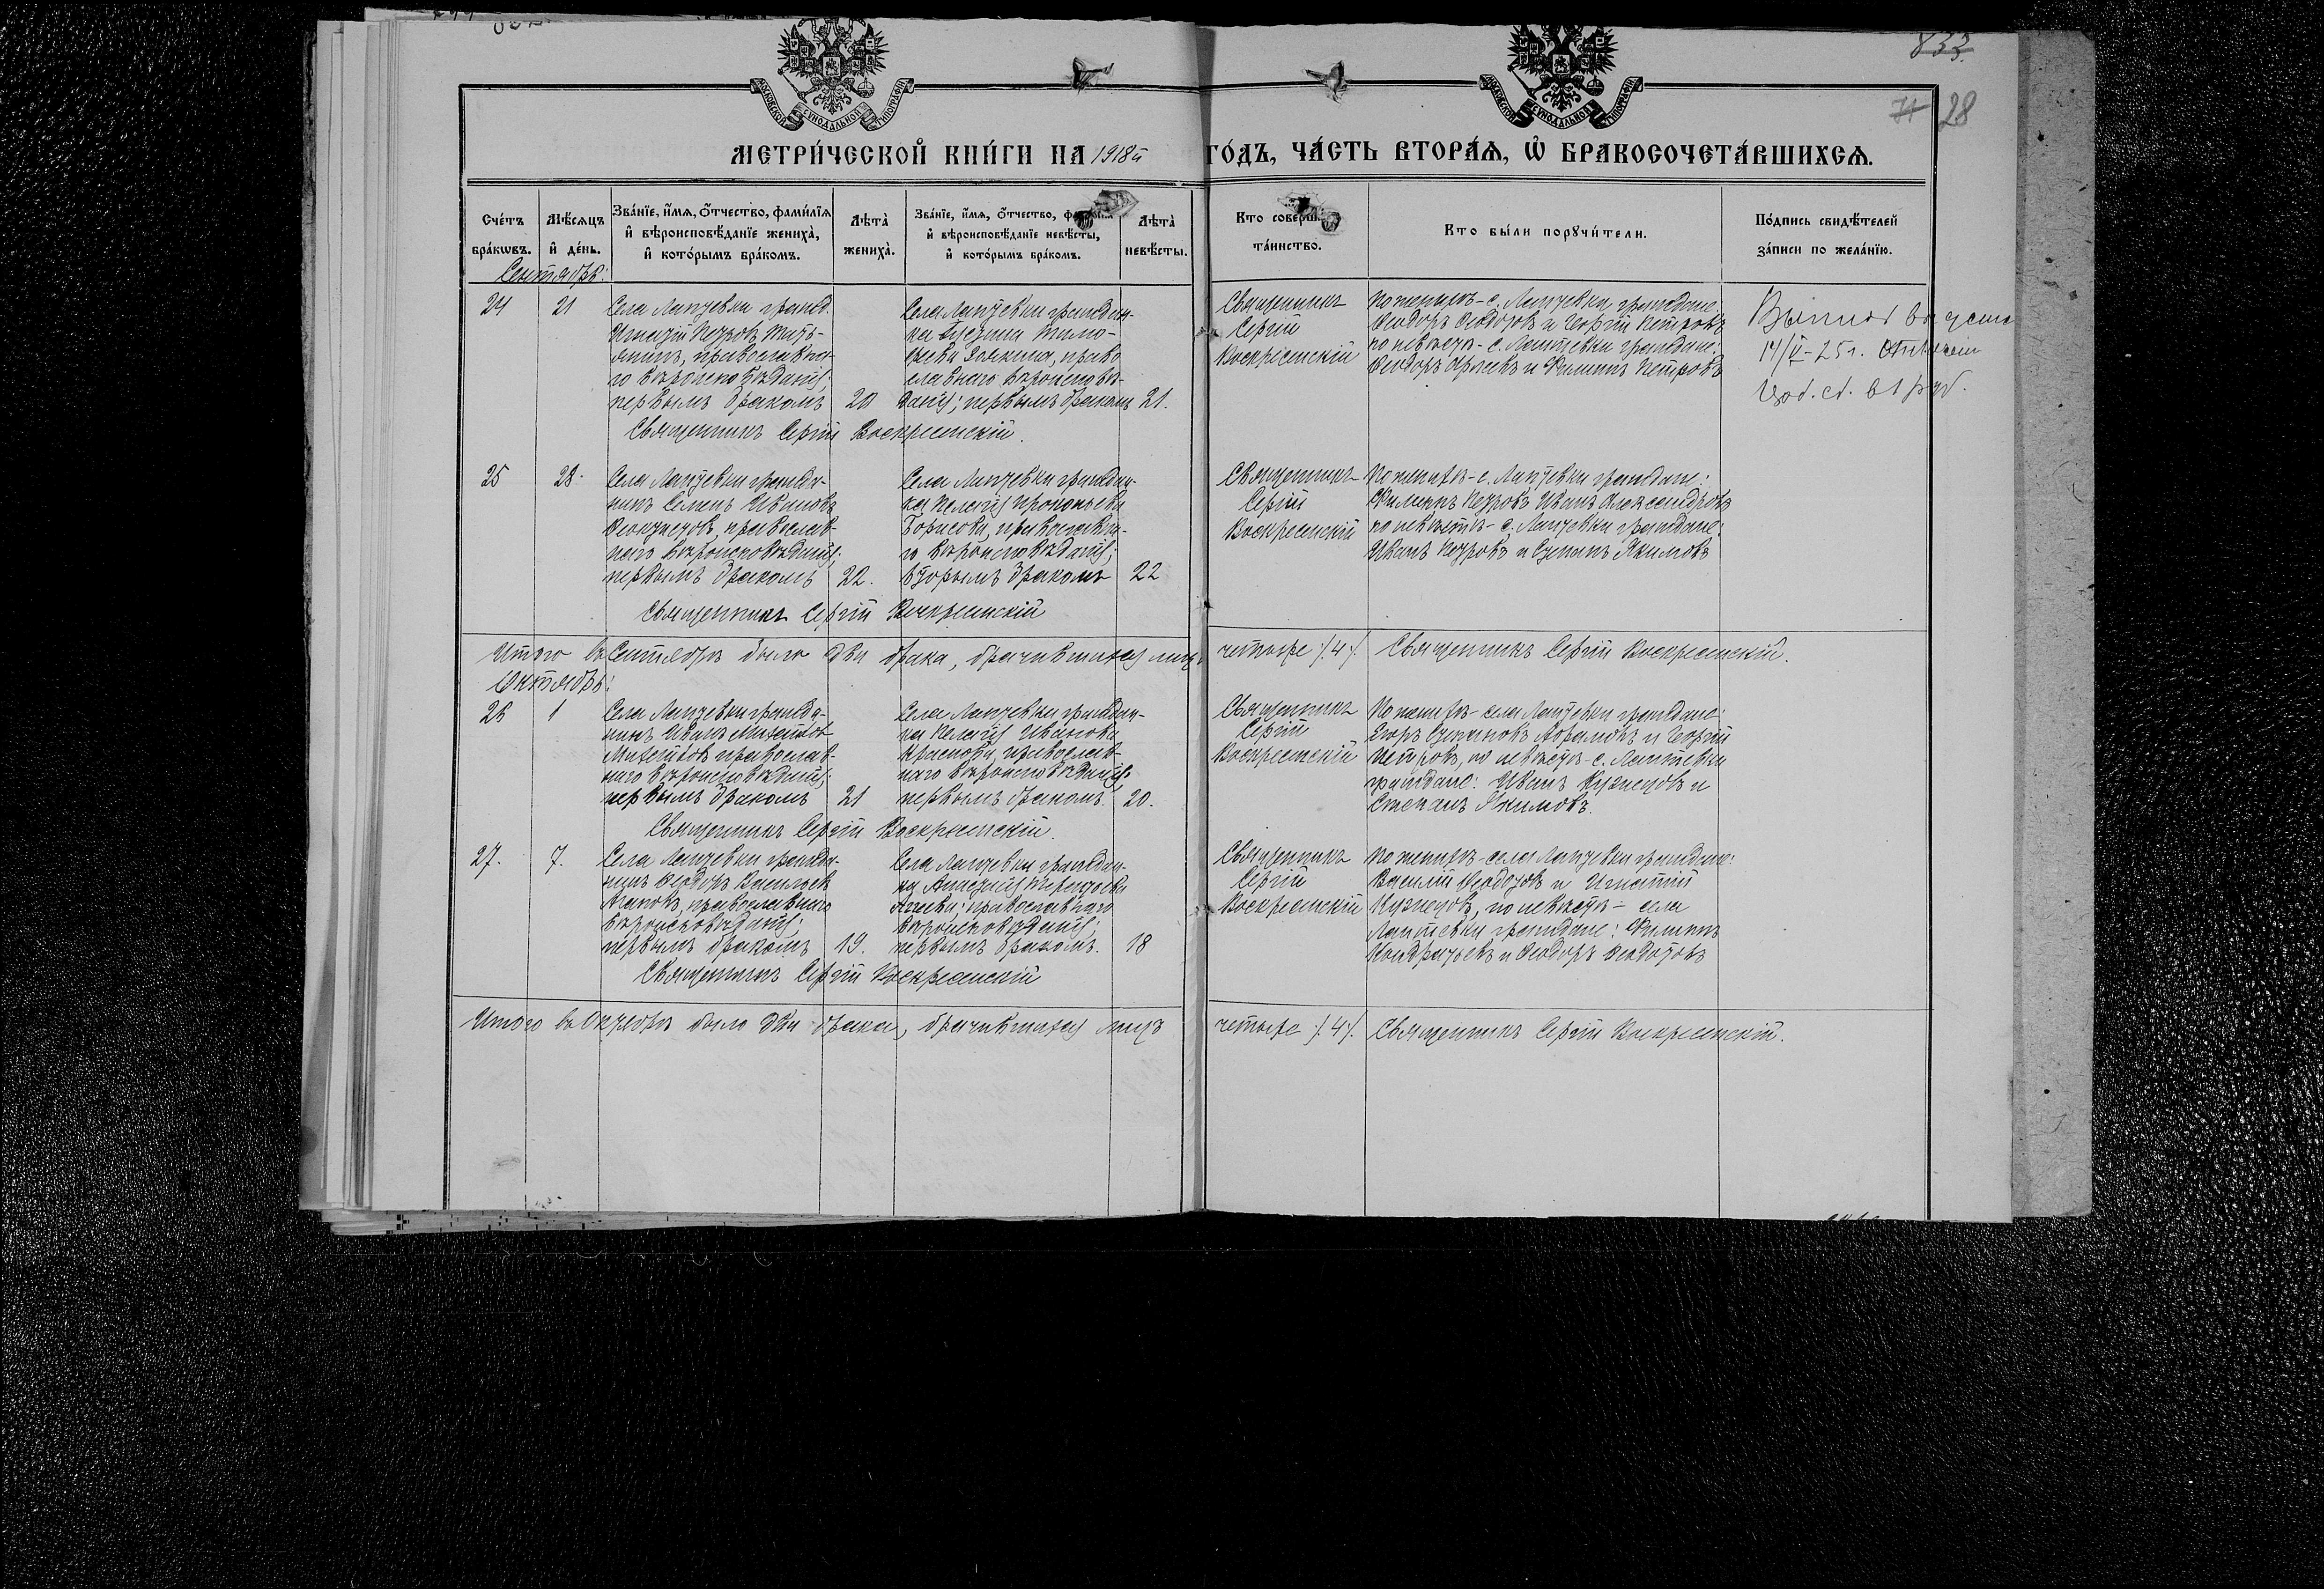 833.
28
МОСКОВСКОЙ СУНОДАЛЬНОЙ ТИПОГРАФІИ
МОСКОВСКОЙ СУНОДАЛЬНОЙ ТИПОГРАФІИ
МЕТРИ́ЧЕСКОЙ КНИ́ГИ НА 1918й ГО́ДЪ, ЧА́СТЬ ВТОРА́Ѧ, Ѽ БРАКОСОЧЕТА́ВШИХСѦ.
Сче́тъ бра́кѡвъ.
Мѣ́сѧцъ и҆ де́нь.
Зва́нїе, и҆́мѧ, ѻ҆́тчество, фами́лїѧ и҆ вѣроисповѣ́данїе жениха̀, и҆ кото́рымъ бра́комъ.
Лѣта̀ жениха̀.
Зва́нїе, и҆́мѧ, ѻ҆́тчество, и҆ вѣроисповѣ́данїе невѣ́сты, и҆ кото́рымъ бра́комъ.
Лѣта̀ невѣ́сты.
Кто соверш. та́инство.
Кто бы́ли порꙋчи́тели.
По́дпись свидѣ́телей за́писи по жела́нїю.
Сентябрь:
24
21
Села Лаптевки гражд.
Игнатій Петровъ
православна-
го вѣроисповѣданія;
первымъ бракомъ
20
Села Лаптевки граждан-
ка
право
славнаго вѣроисповѣ-
данія; первымъ бракомъ
21.
Священникъ
Сергій
Воскресенскій
По женихѣ - с. Лаптевки граждане:
Ѳеодоръ Ѳеодоровъ и Георгій Петровъ
по невѣстѣ - с. Лаптевки граждане:
Ѳеодоръ и Филиппъ Петровъ
14/II-25 г.
Священникъ Сергій Воскресенскій.
25
28.
Села Лаптевки гражда-
нинъ Семенъ Ивановъ
православ-
наго вѣроисповѣданія;
первымъ бракомъ
22.
Села Лаптевки граждан-
ка Пелагія Прокопьева
Борисова, православна-
го вѣроисповѣданія;
вторымъ бракомъ
22
Священникъ
Сергій
Воскресенскій
По женихѣ - с. Лаптевки граждане:
Филиппъ Петровъ Иванъ Александровъ
по невѣстѣ - с. Лаптевки граждане:
Иванъ Петровъ и Степанъ Якимовъ
Священникъ Сергій Воскресенскій
Итого въ Сентябрѣ было два брака, брачившихся лицъ четыре /.4/. Священникъ Сергій Воскресенскій.
Октябрь:
26
1
Села Лаптевки гражда-
нинъ Иванъ
православ-
наго вѣроисповѣданія;
первымъ бракомъ
21
Села Лаптевки граждан-
ка Пелагія Иванова
православ-
наго вѣроисповѣданія;
первымъ бракомъ.
20.
Священникъ
Сергій
Воскресенскій
По женихѣ - села Лаптевки граждане:
Егоръ Степановъ Абрамовъ и Георгій
Петровъ, по невѣстѣ - с. Лаптевки
граждане: Иванъ Кузнецовъ и
Степанъ Якимовъ.
Священникъ Сергій Воскресенскій.
27.
7.
Села Лаптевки гражда-
нинъ Ѳеодоръ Васильевъ
Агаповъ, православнаго
вѣроисповѣданія;
первымъ бракомъ
19.
Села Лаптевки граждан-
ка Анастасія Терентьева
Агеева; православнаго
вѣроисповѣданія;
первымъ бракомъ.
18
Священникъ
Сергій
Воскресенскій
По женихѣ - села Лаптевки граждане:
Василій Ѳеодотовъ и Игнатій
Кузнецовъ, по невѣстѣ - села
Лаптевки граждане: Филиппъ
Кондратьевъ и Ѳеодоръ Ѳеодотовъ
Священникъ Сергій Воскресенскій
Итого въ Октябрѣ было два брака, брачившихся лицъ четыре /.4/. Священникъ Сергій Воскресенскій.